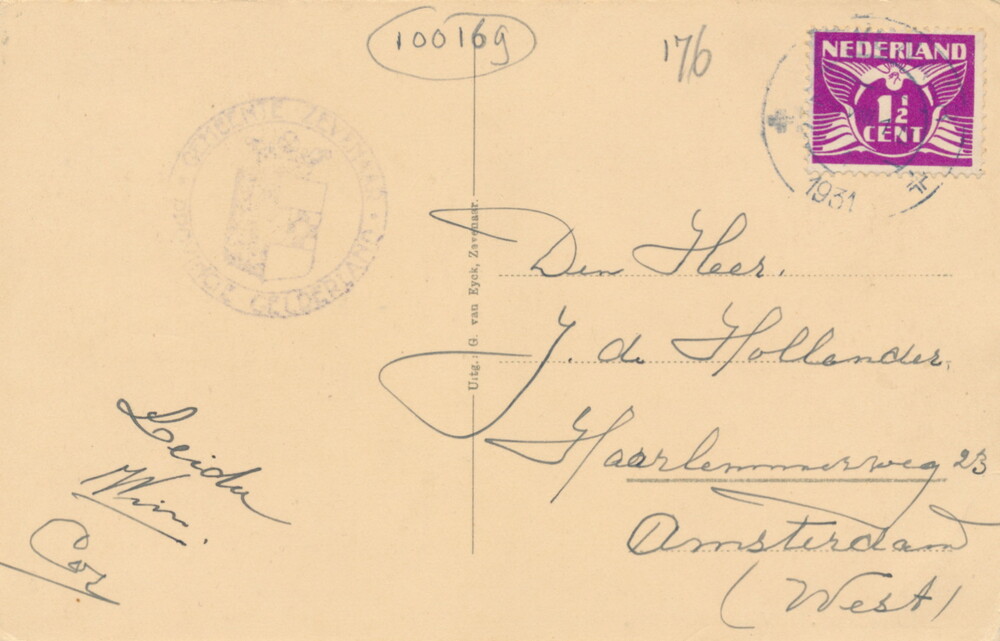 100169
176
NEDERLAND
1½
CENT
1931
GEMEENTE ZEVENAAR
GELDERLAND
Uitg.: G. van Eyck, Zavenaar.
Den Heer.
J. de Hollander,
Haarlemmerweg 23
Amsterdam
(West)
Leida
Wim.
Cor